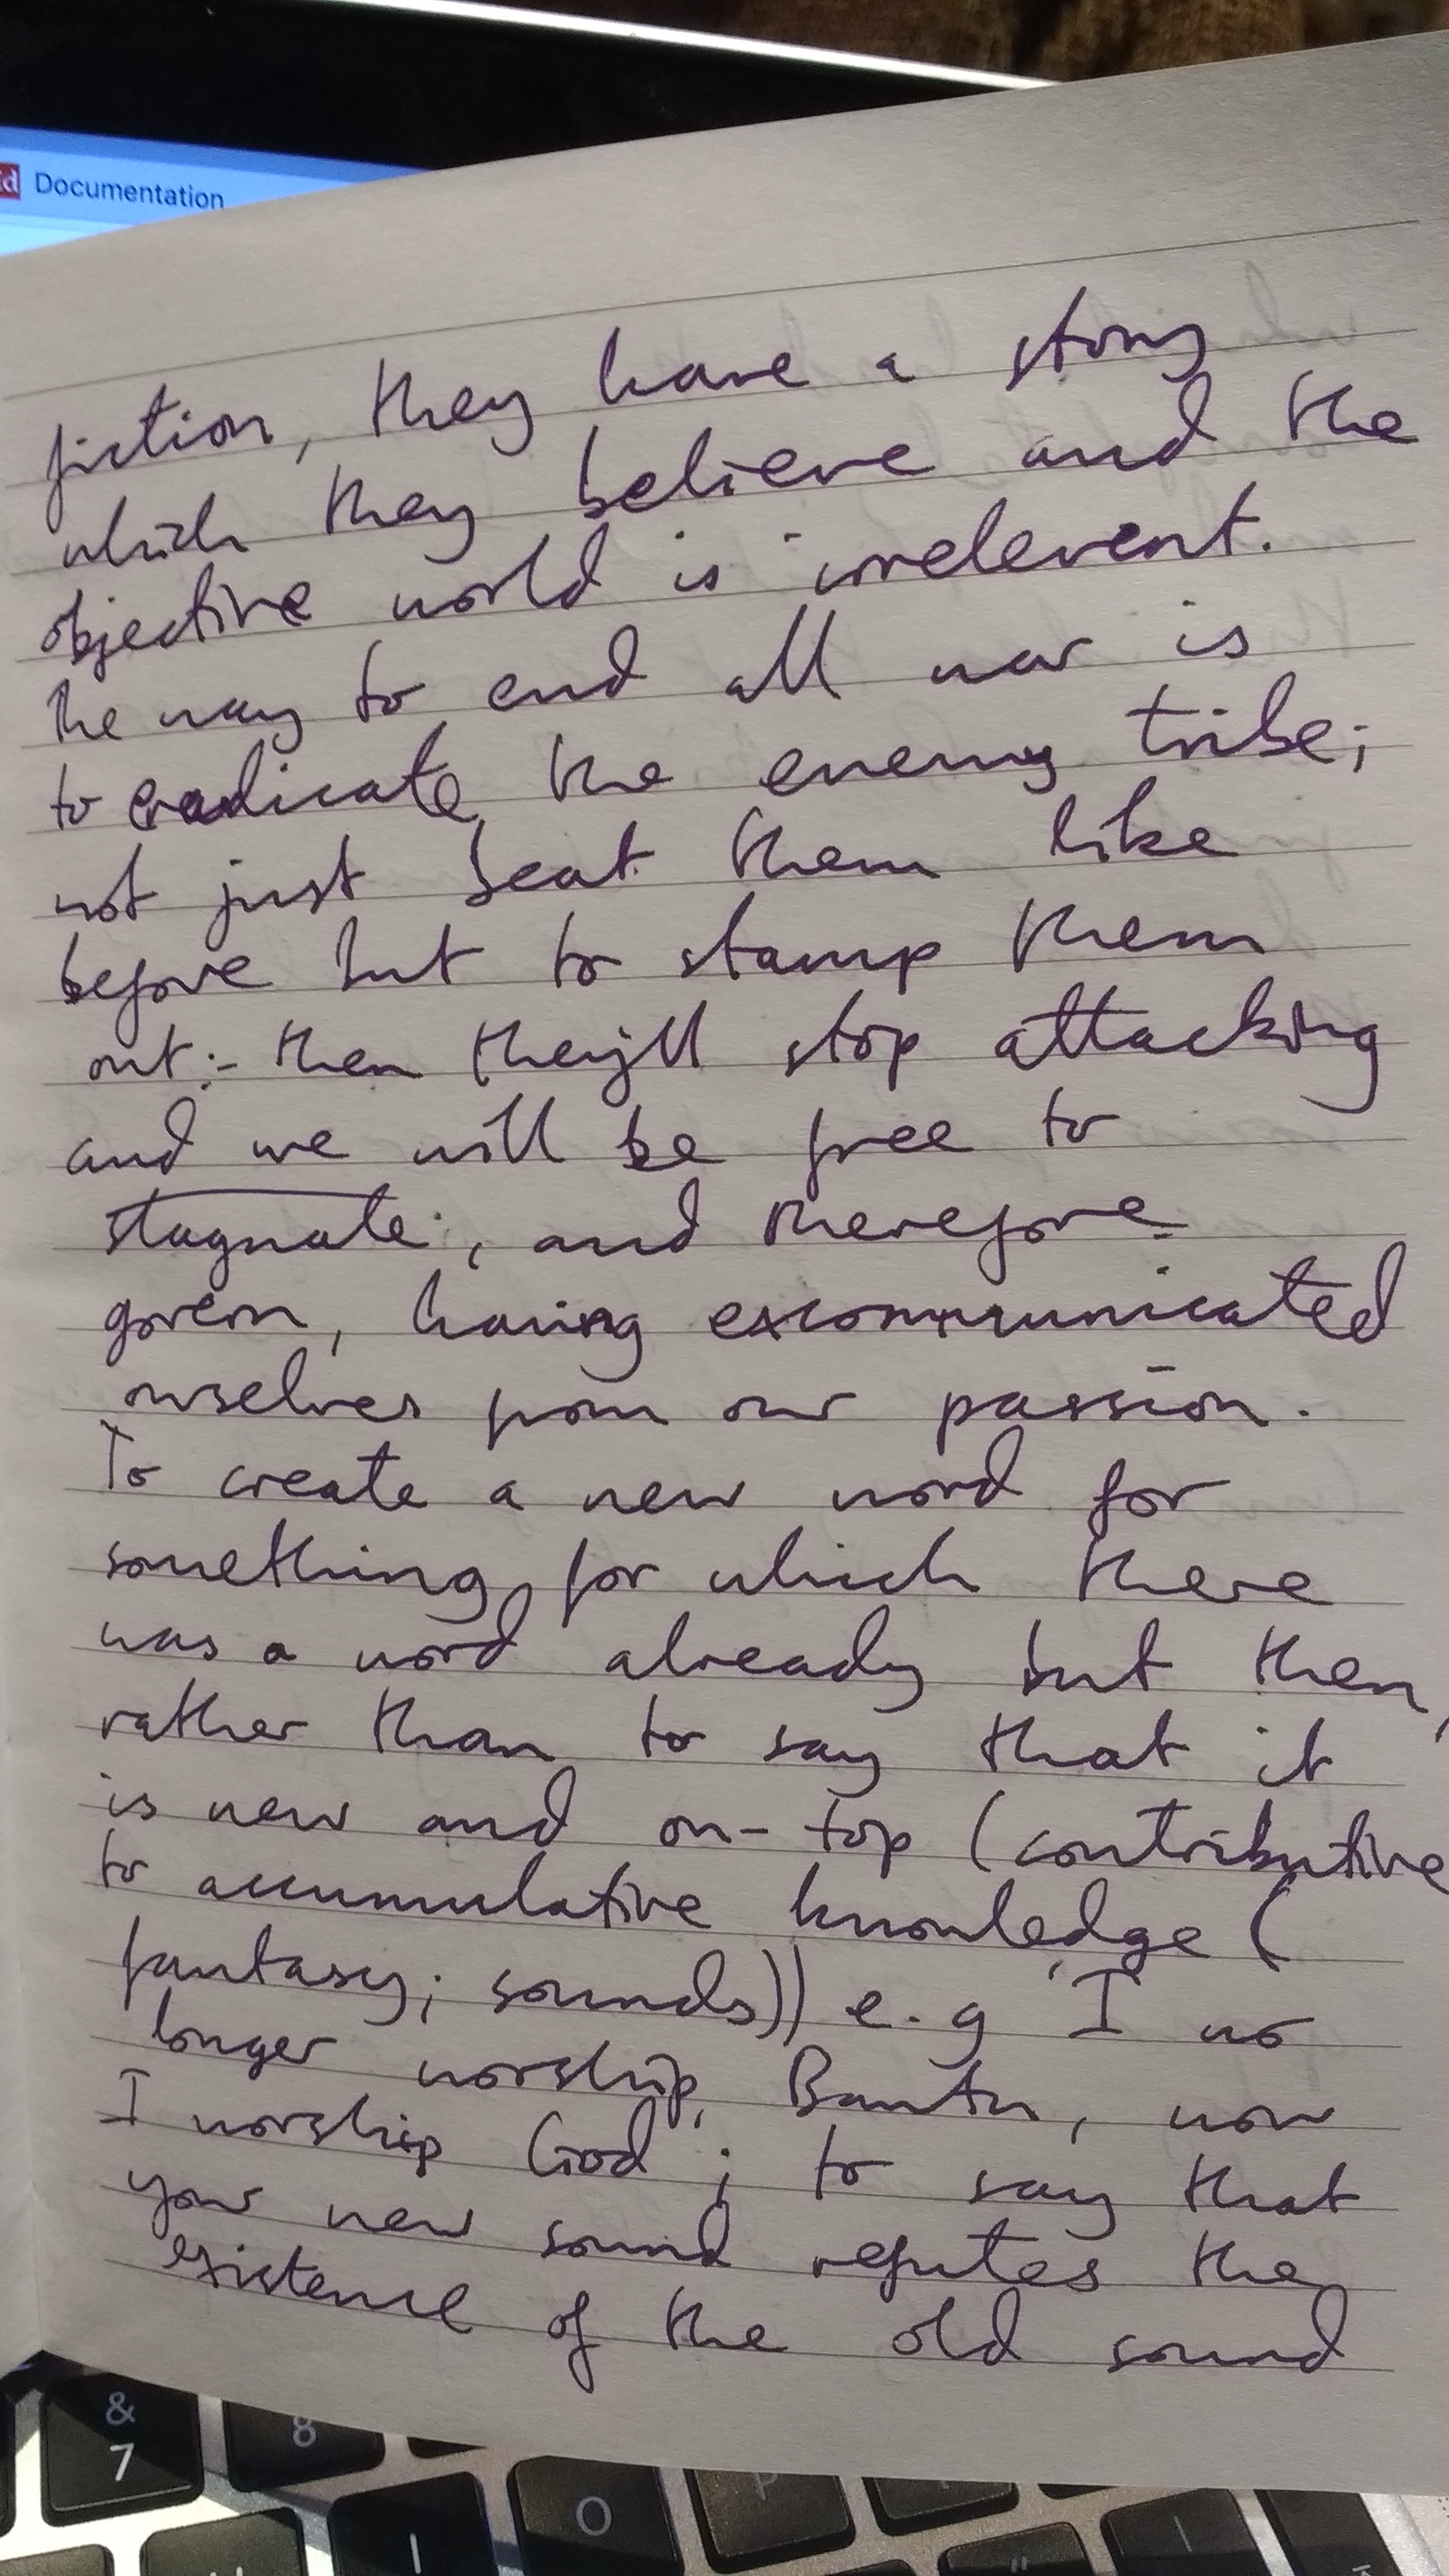 Documentation
fiction, they have a story
which they believe and the
objective world is irrelevent.
The way to end all war is
to eradicate the enemy tribe;
not just beat them like
before but to stamp them
out:- then they'll stop attacking
and we will be free to
stagnate, and therefore
govern, having excommunicated
ourselves from our passion.
To create a new word for
something for which there
was a word already but then,
rather than to say that it
is new and on-top (contributive
to accumulative knowledge (
fantasy; sounds)) e.g 'I no
longer worship, Bantu, now
I worship God'; to say that
your new sound refutes the
existence of the old sound
&
7
8
O
P